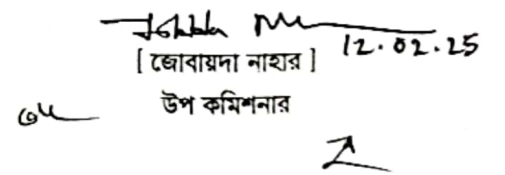 12.02.25
[ জোবায়দা নাহার ]
উপ কমিশনার